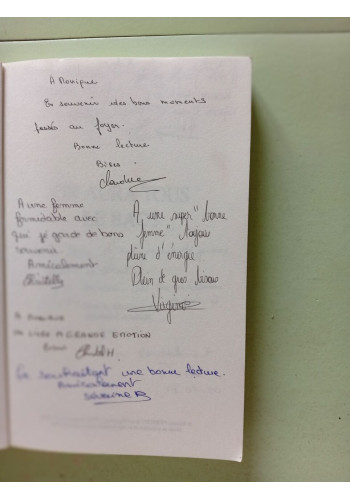 A Monique
En souvenir des bons moments
passés au foyer.
Bonne lecture
Bises
Claudine
A une femme
formidable avec
qui je garde de bons
souvenirs.
Amicalement
A une super "bonne
femme"
pleine d'énergie
Plein de gros bisous
Virginie
A MONIQUE
UN LIVRE A GRANDE EMOTION
Bisous
Chantal H.
En souhaitant une bonne lecture.
Amicalement
Séverine B